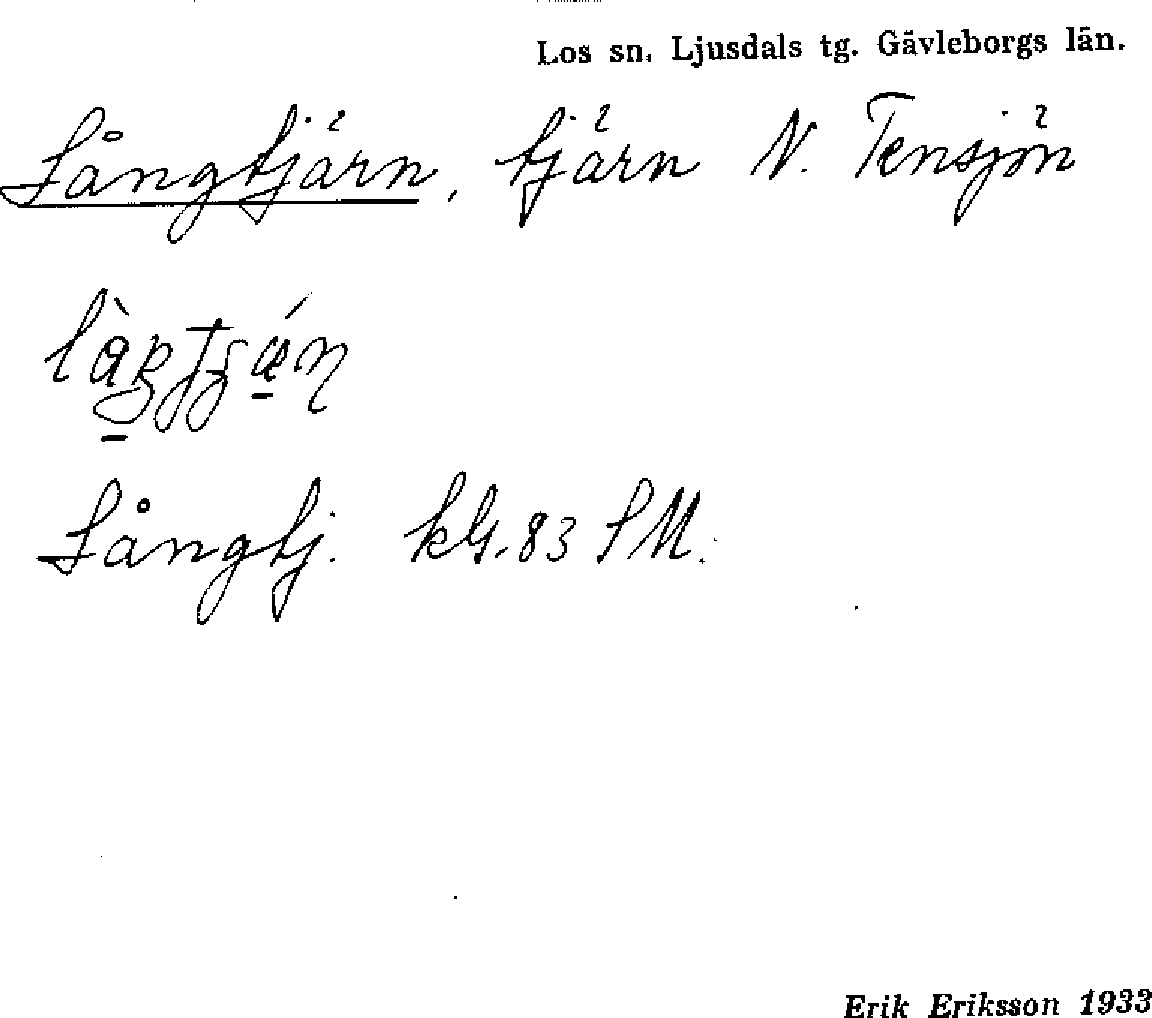 Los sn. Ljusdals tg. Gävleborgs län.
Långtjärn, tjärn N. Tensjön
Långtj. kbl. 83 SM.
Erik Eriksson 1933